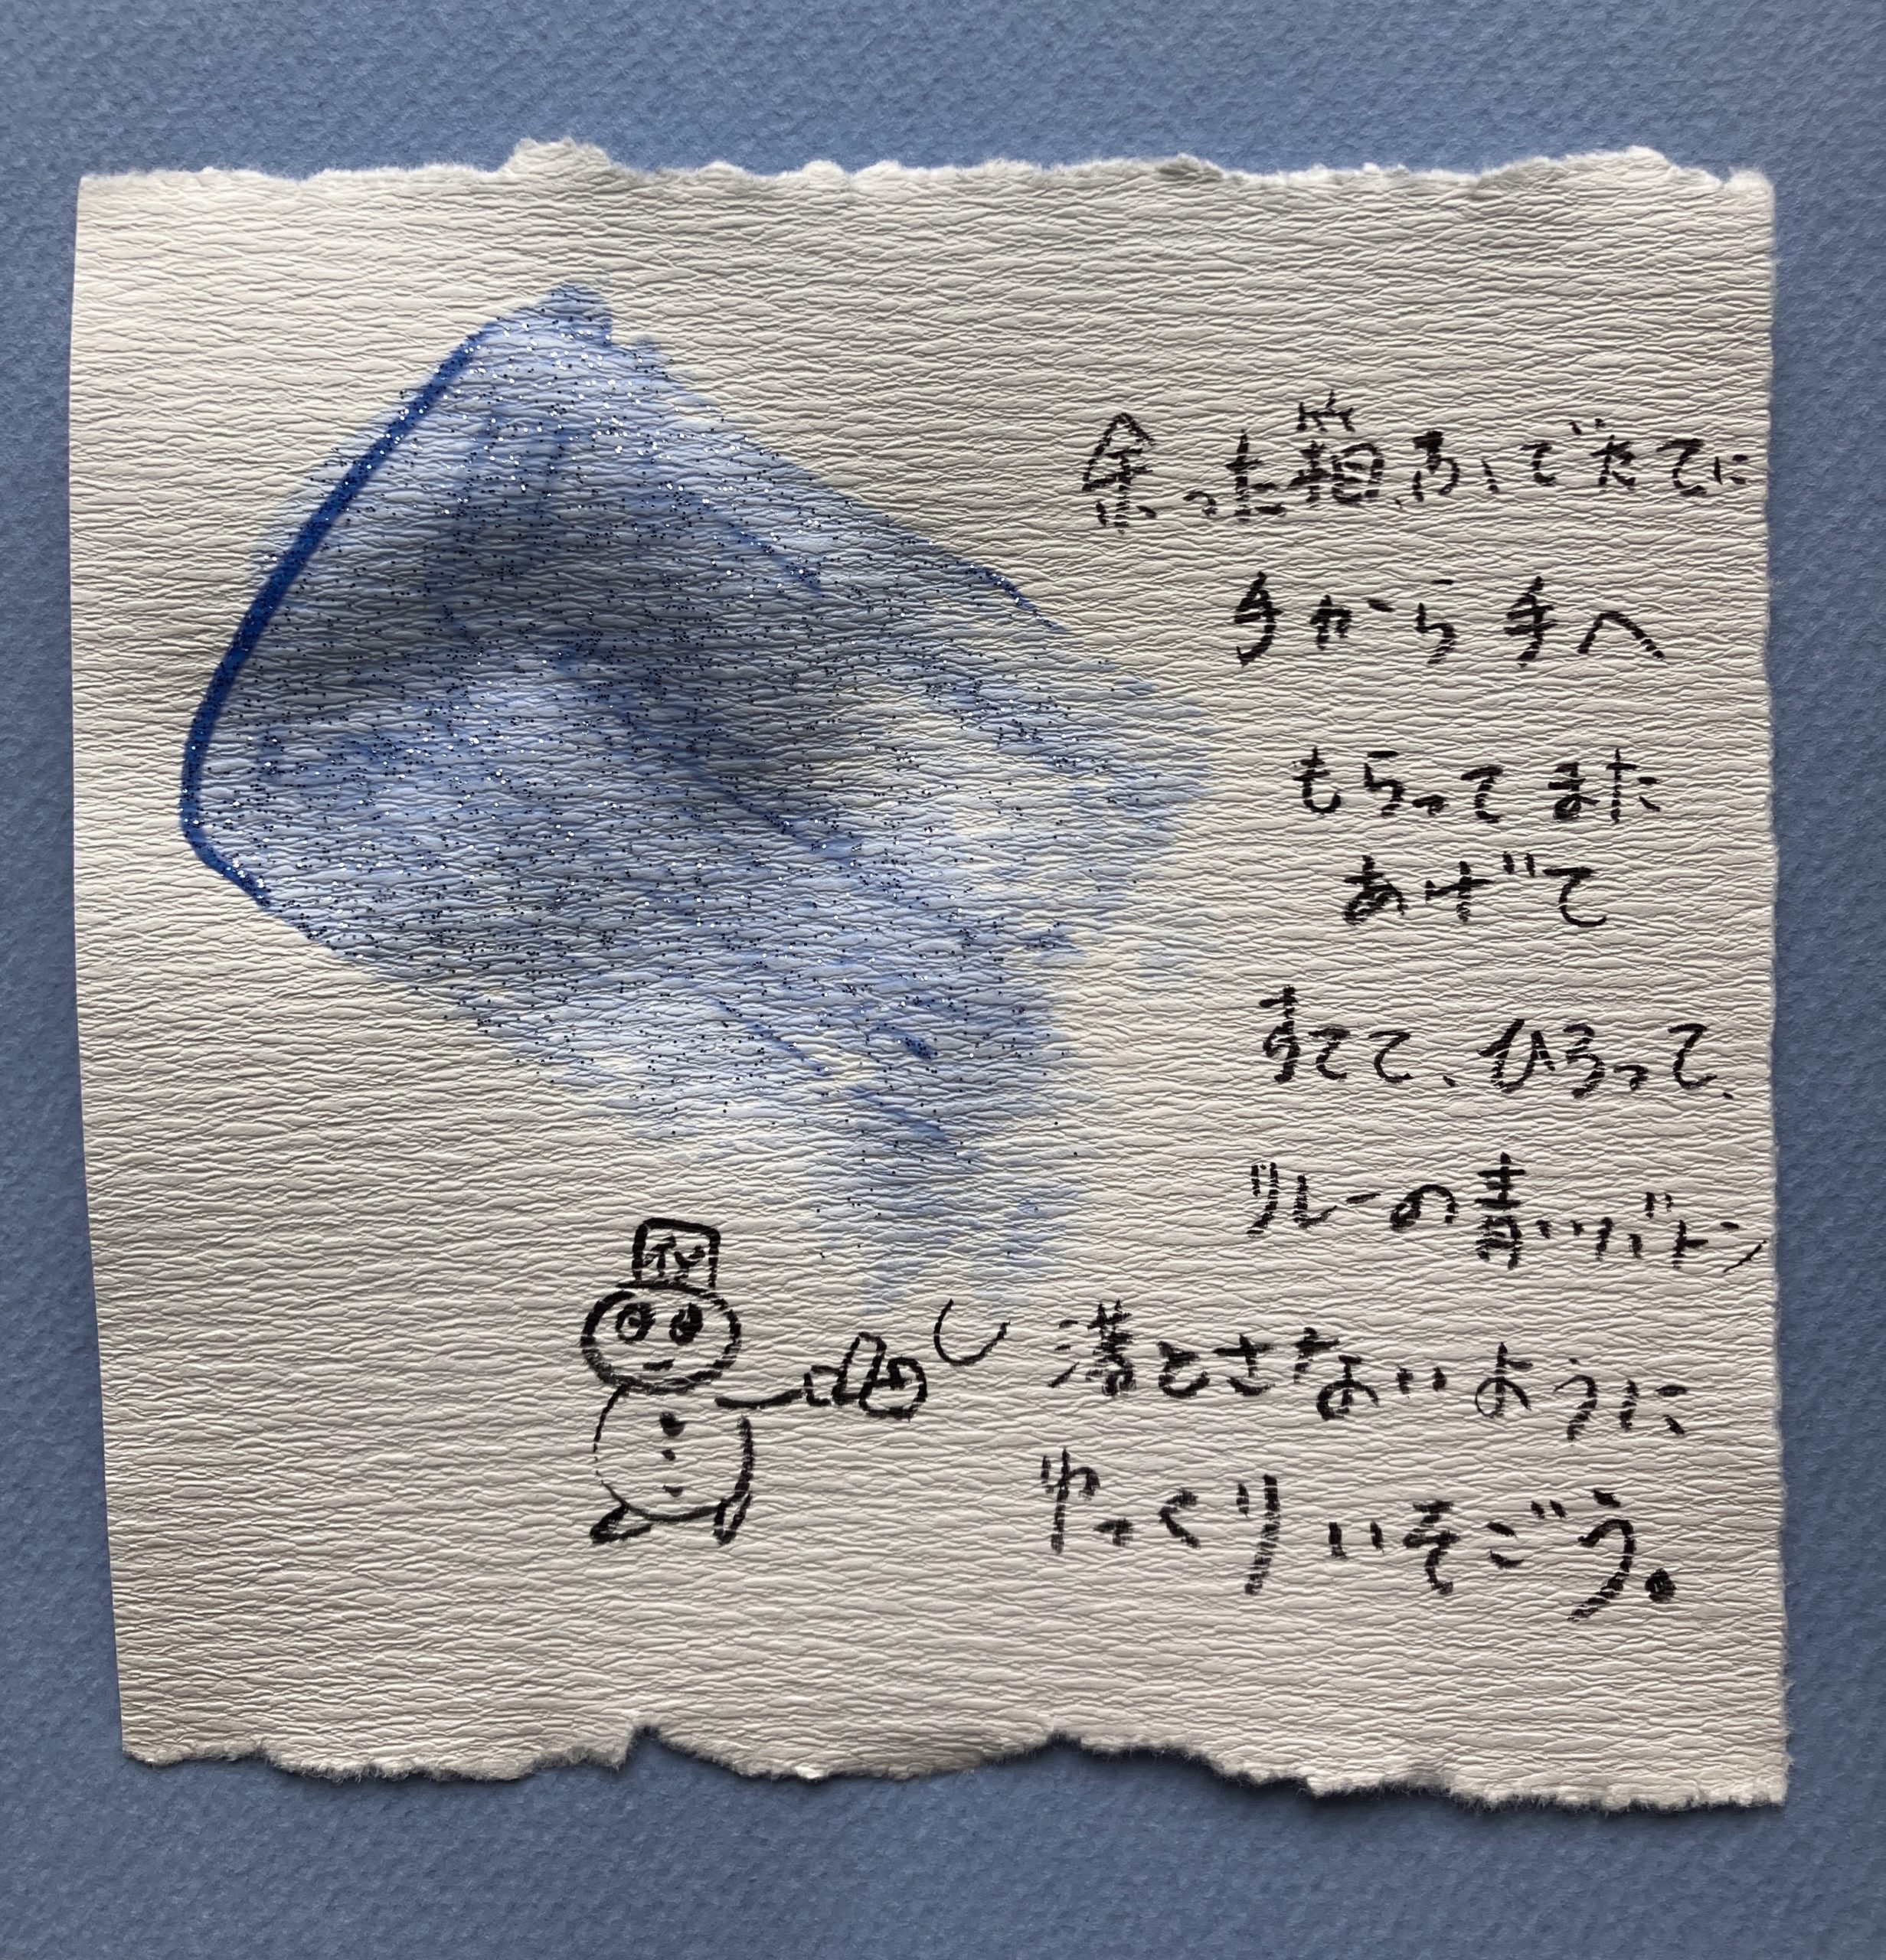 余った箱、ふでたてに
手から手へ
もらってまた
あげて
すてて、ひろって、
リレーの青いバトン
落とさないように
ゆっくりいそごう。